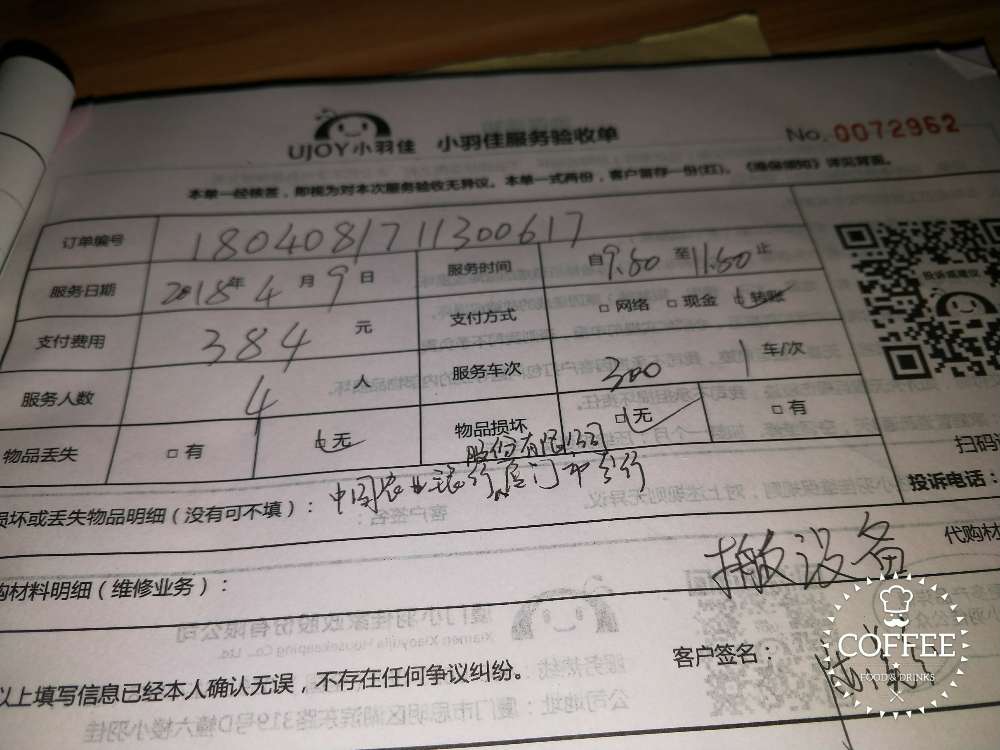 UJOY小羽佳 小羽佳服务验收单 No. 0072962
本单一经核签，即视为对本次服务验收无异议。本单一式两份，客户留存一份(红)。《维保须知》详见背面。
订单编号 1804081711300617
服务日期 2018年4月9日 服务时间 自9.80至11.50止
支付费用 384元 支付方式 □网络 □现金 □转账
服务人数 4人 服务车次 300 1车/次
物品丢失 □有 □无 物品损坏 □无 □有
股份有限公司
损坏或丢失物品明细（没有可不填）： 中国农业银行厦门市分行
扫码
投诉电话：
投诉或建议
搬设备
代购材
购材料明细（维修业务）：
以上填写信息已经本人确认无误，不存在任何争议纠纷。
客户签名：
COFFEE
FOOD & DRINKS